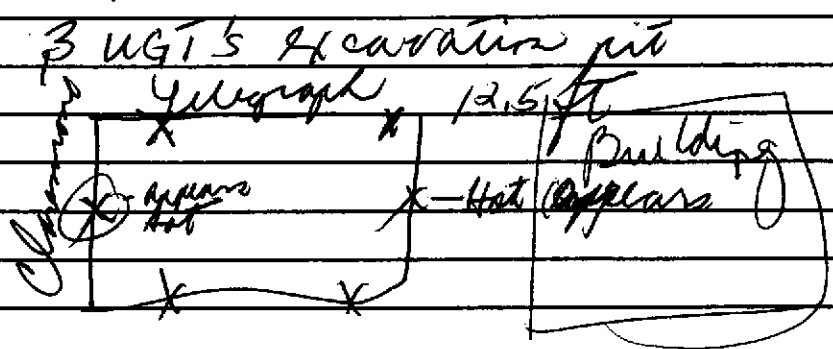 3 UGT's excavation pit
Telegraph 12.5 ft
Building
X X
X - appears hot X - Hot (appears
X X